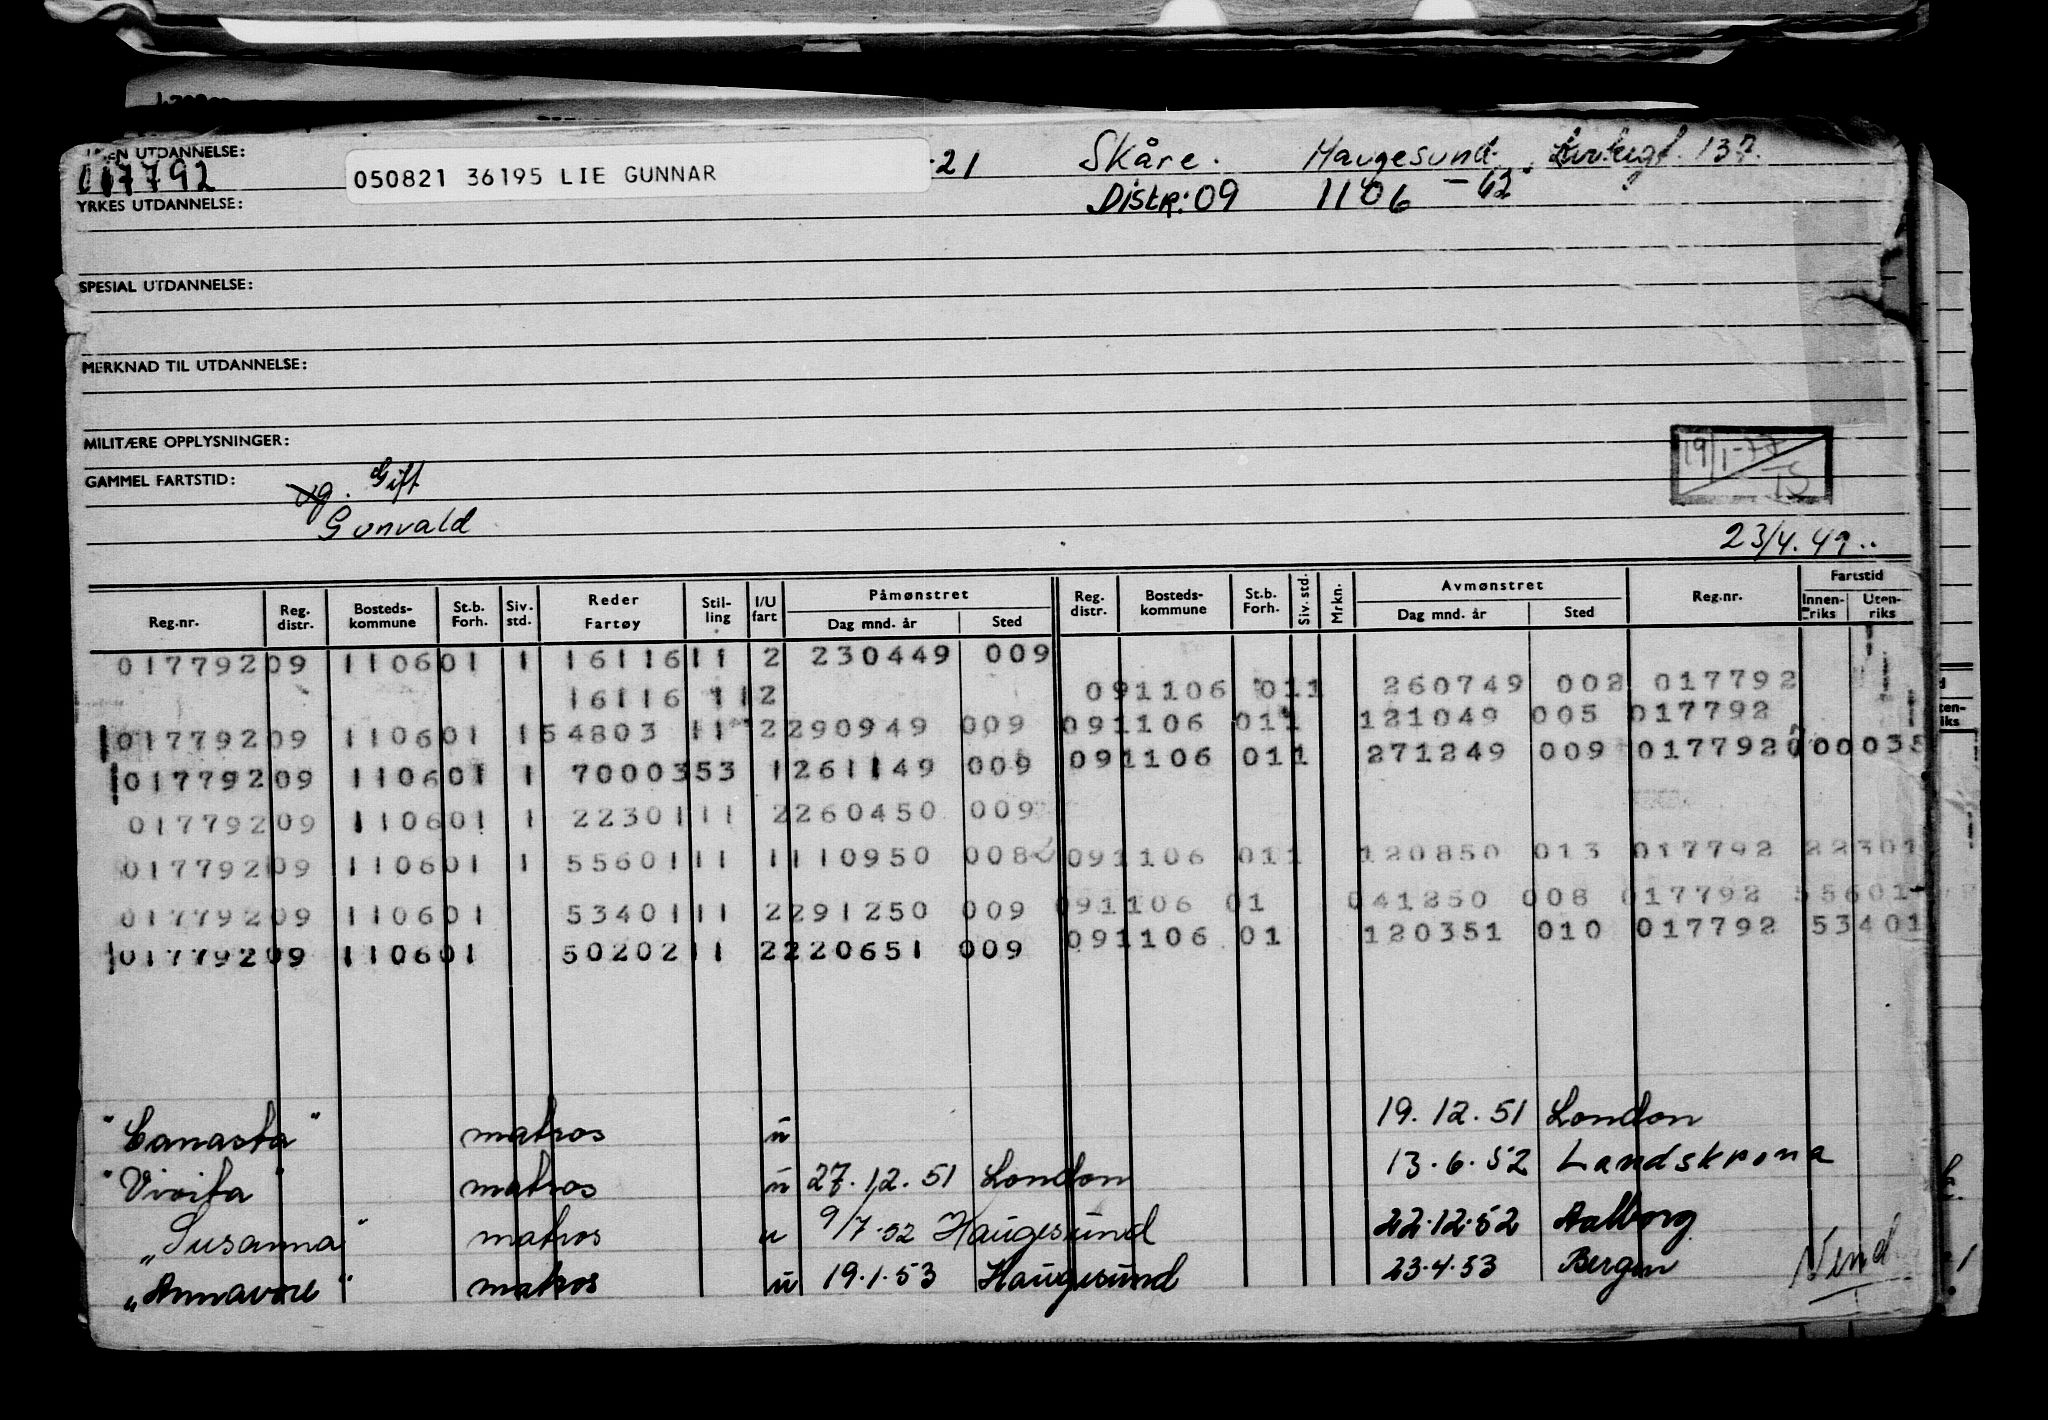 ALMEN UTDANNELSE:
017792
050821 36195 LIE GUNNAR
-21 Skåre. Haugesund. 137.
Distr: 09 1106 - 62
YRKES UTDANNELSE:
SPESIAL UTDANNELSE:
MERKNAD TIL UTDANNELSE:
MILITÆRE OPPLYSNINGER:
19/1-77
GAMMEL FARTSTID: ug. Gift
Gunvald
23/4.49..
Reg.nr. Reg. distr. Bosteds-kommune St.b. Forh. Siv. std. Reder Fartøy Stil-ling I/U fart Påmønstret Dag mnd. år Sted Reg. distr. Bosteds-kommune St.b. Forh. Siv. std. Mrkn. Avmønstret Dag mnd. år Sted Reg.nr. Fartstid Innen-riks Uten-riks
01779209 110601 1 1611611 2 230449 009
16116 112 091106 011 260749 002 017792
01779209 110601 154803 11 2290949 009 091106 011 121049 005 017792
01779209 110601 1 7000353 1261149 009 091106 011 271249 009 0177920 00035
01779209 110601 1 2230111 2260450 009
01779209 110601 1 5560111 1110950 008 091106 011 120850 013 017792 22301
01779209 110601 5340111 2291250 009 091106 01 041250 008 017792 55601
01779209 110601 5020211 2220651 009 091106 01 120351 010 017792 53401
"Canasta" matros u 19.12.51 London
"Vivita" matros u 27.12.51 London 13.6.52 Landskrona
"Susanna" matros u 9/7.52 Haugesund 22.12.52 Aalborg
"Annavore" matros u 19.1.53 Haugesund 23.4.53 Bergen
Vend